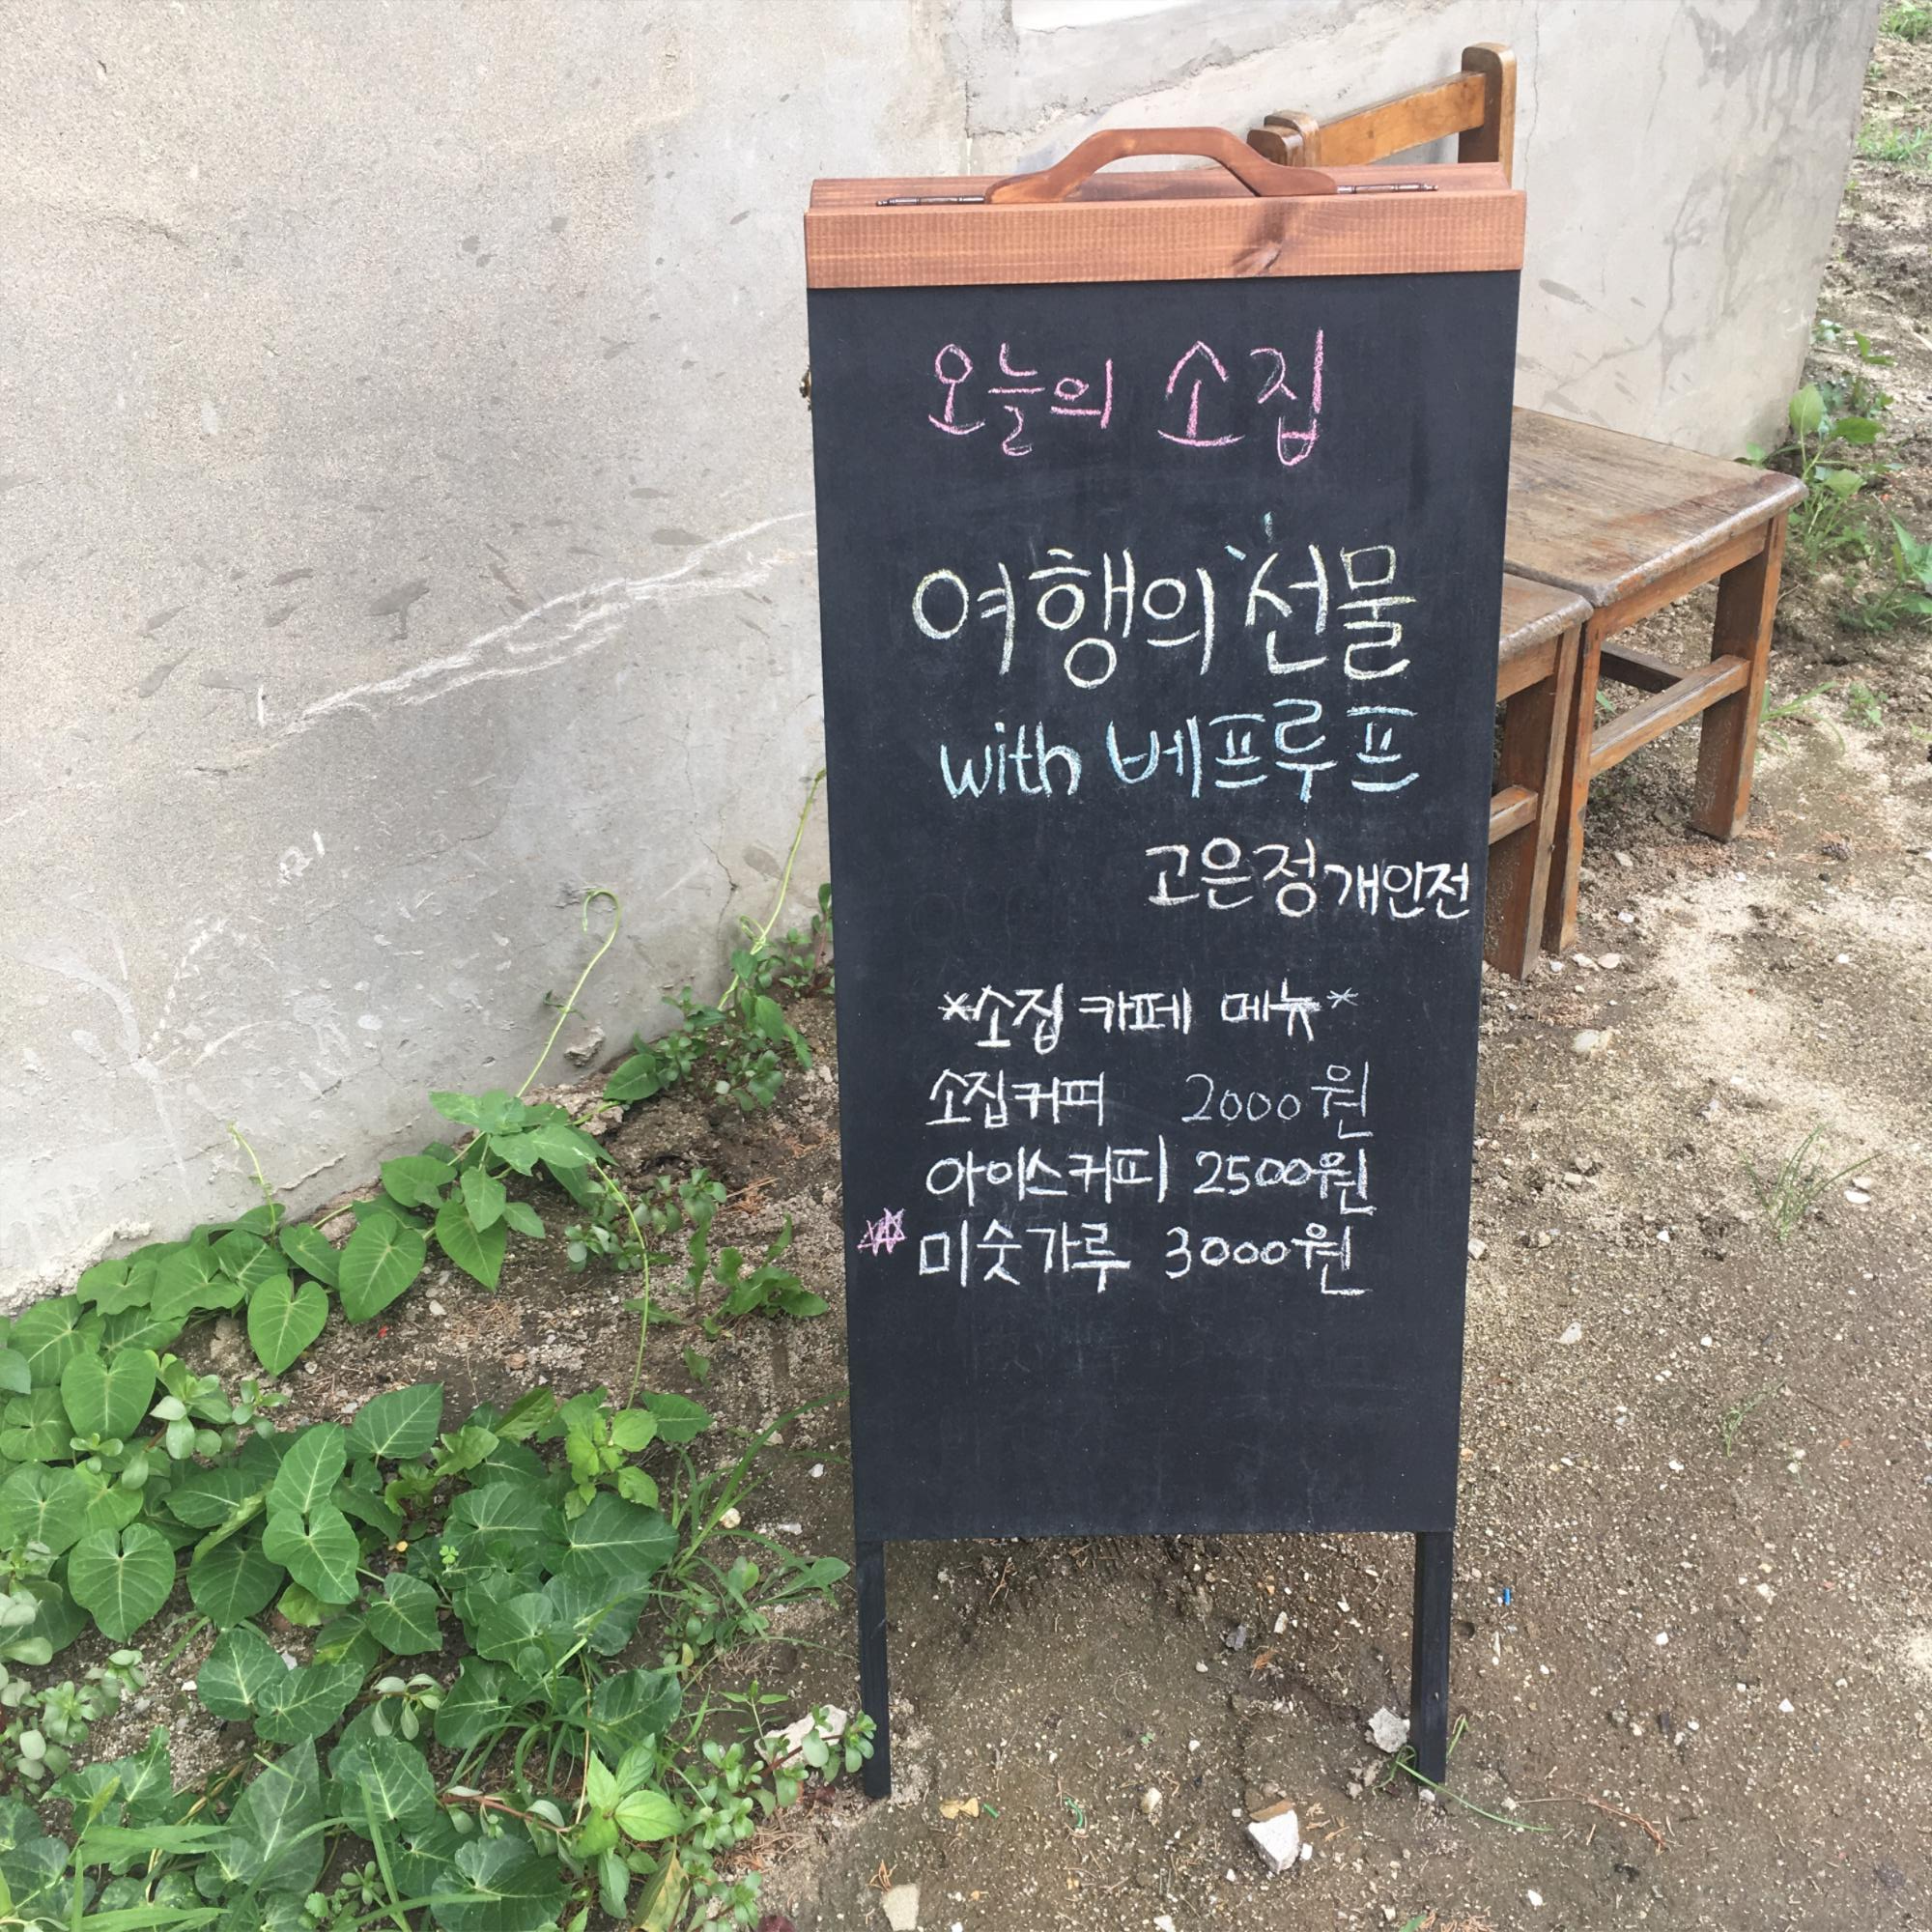 오늘의 소집
여행의 선물
with 베프루프
고은정 개인전
*소집 카페 메뉴*
소집커피 2000원
아이스커피 2500원
미숫가루 3000원